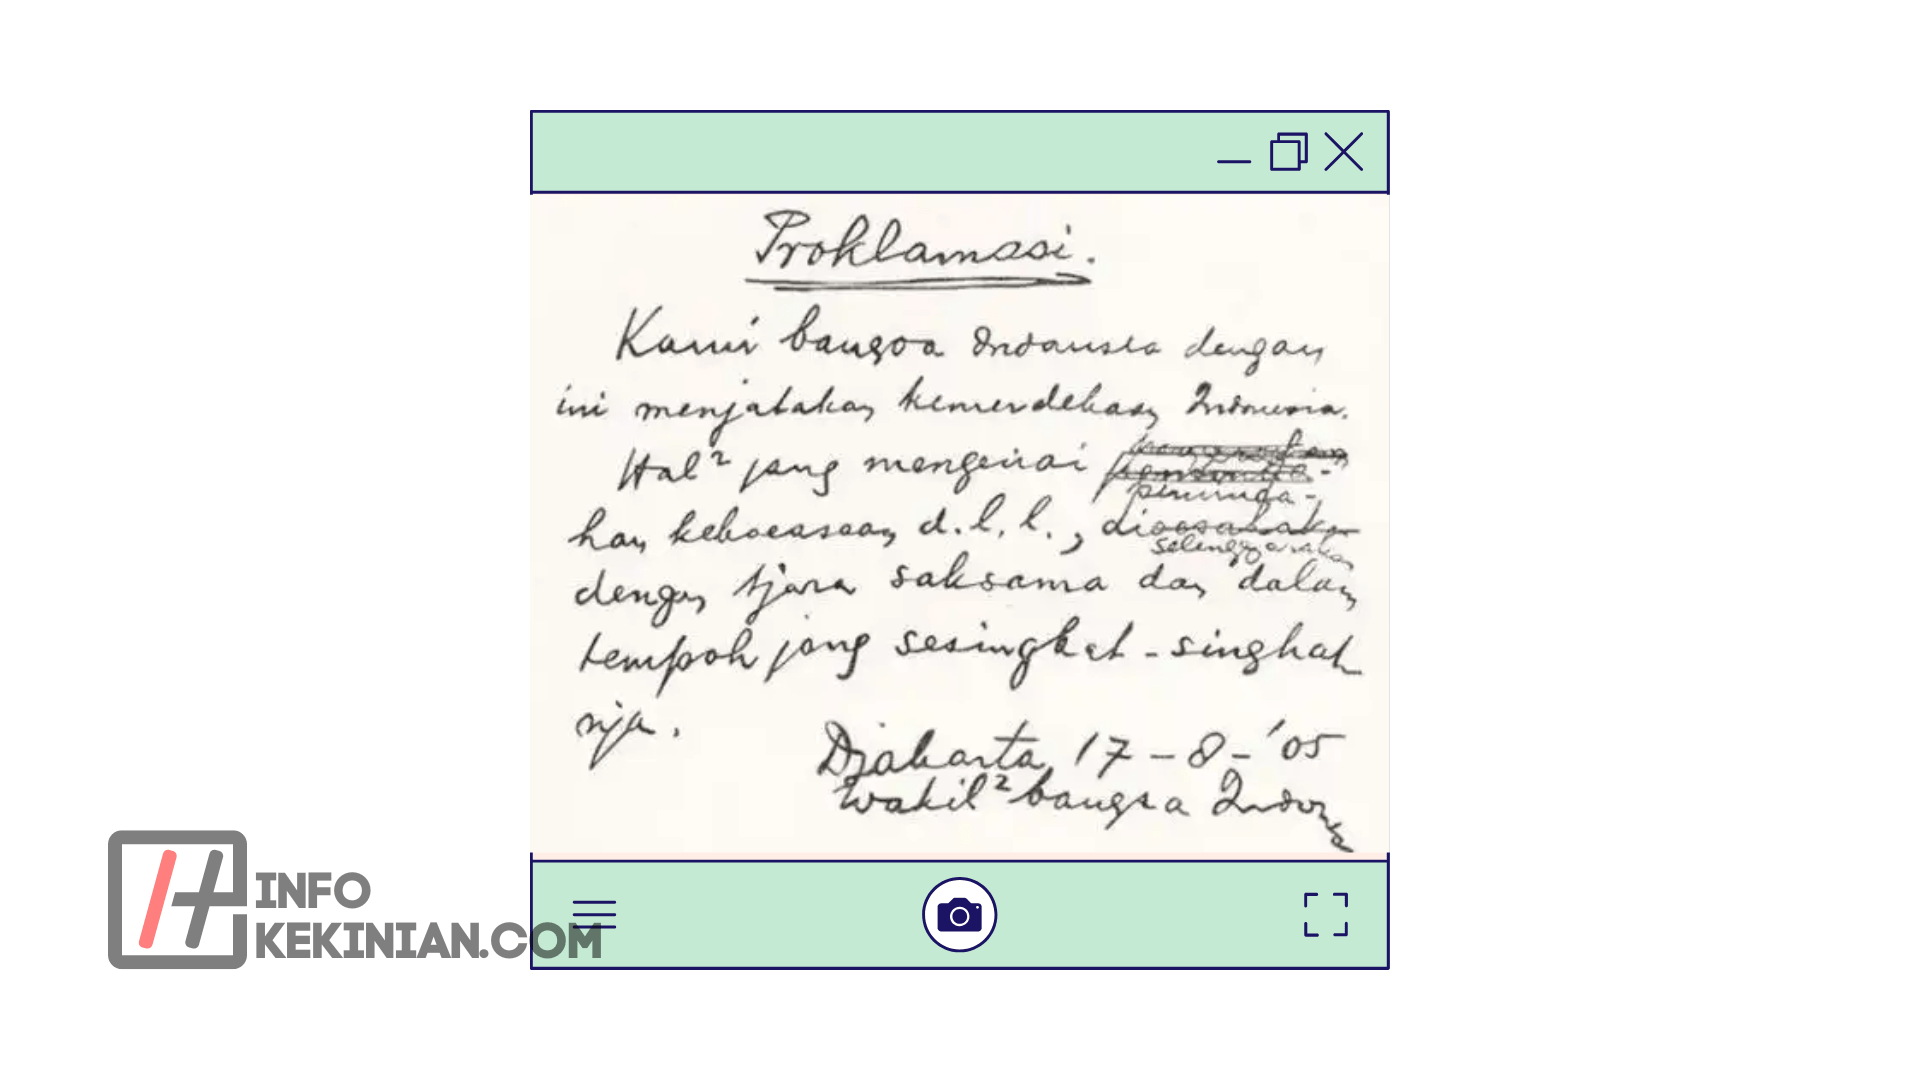 Proklamasi.
Kami bangsa Indonesia dengan
ini menjatakan kemerdekaan Indonesia.
Hal² jang mengenai
peminda-
han kekoeasaan d.l.l., di
selenggarakan
dengan tjara saksama dan dalam
tempoh jang sesingkat-singkat
nja.
Djakarta 17-8-'05
Wakil² bangsa Indonesia
INFO
KEKINIAN.COM